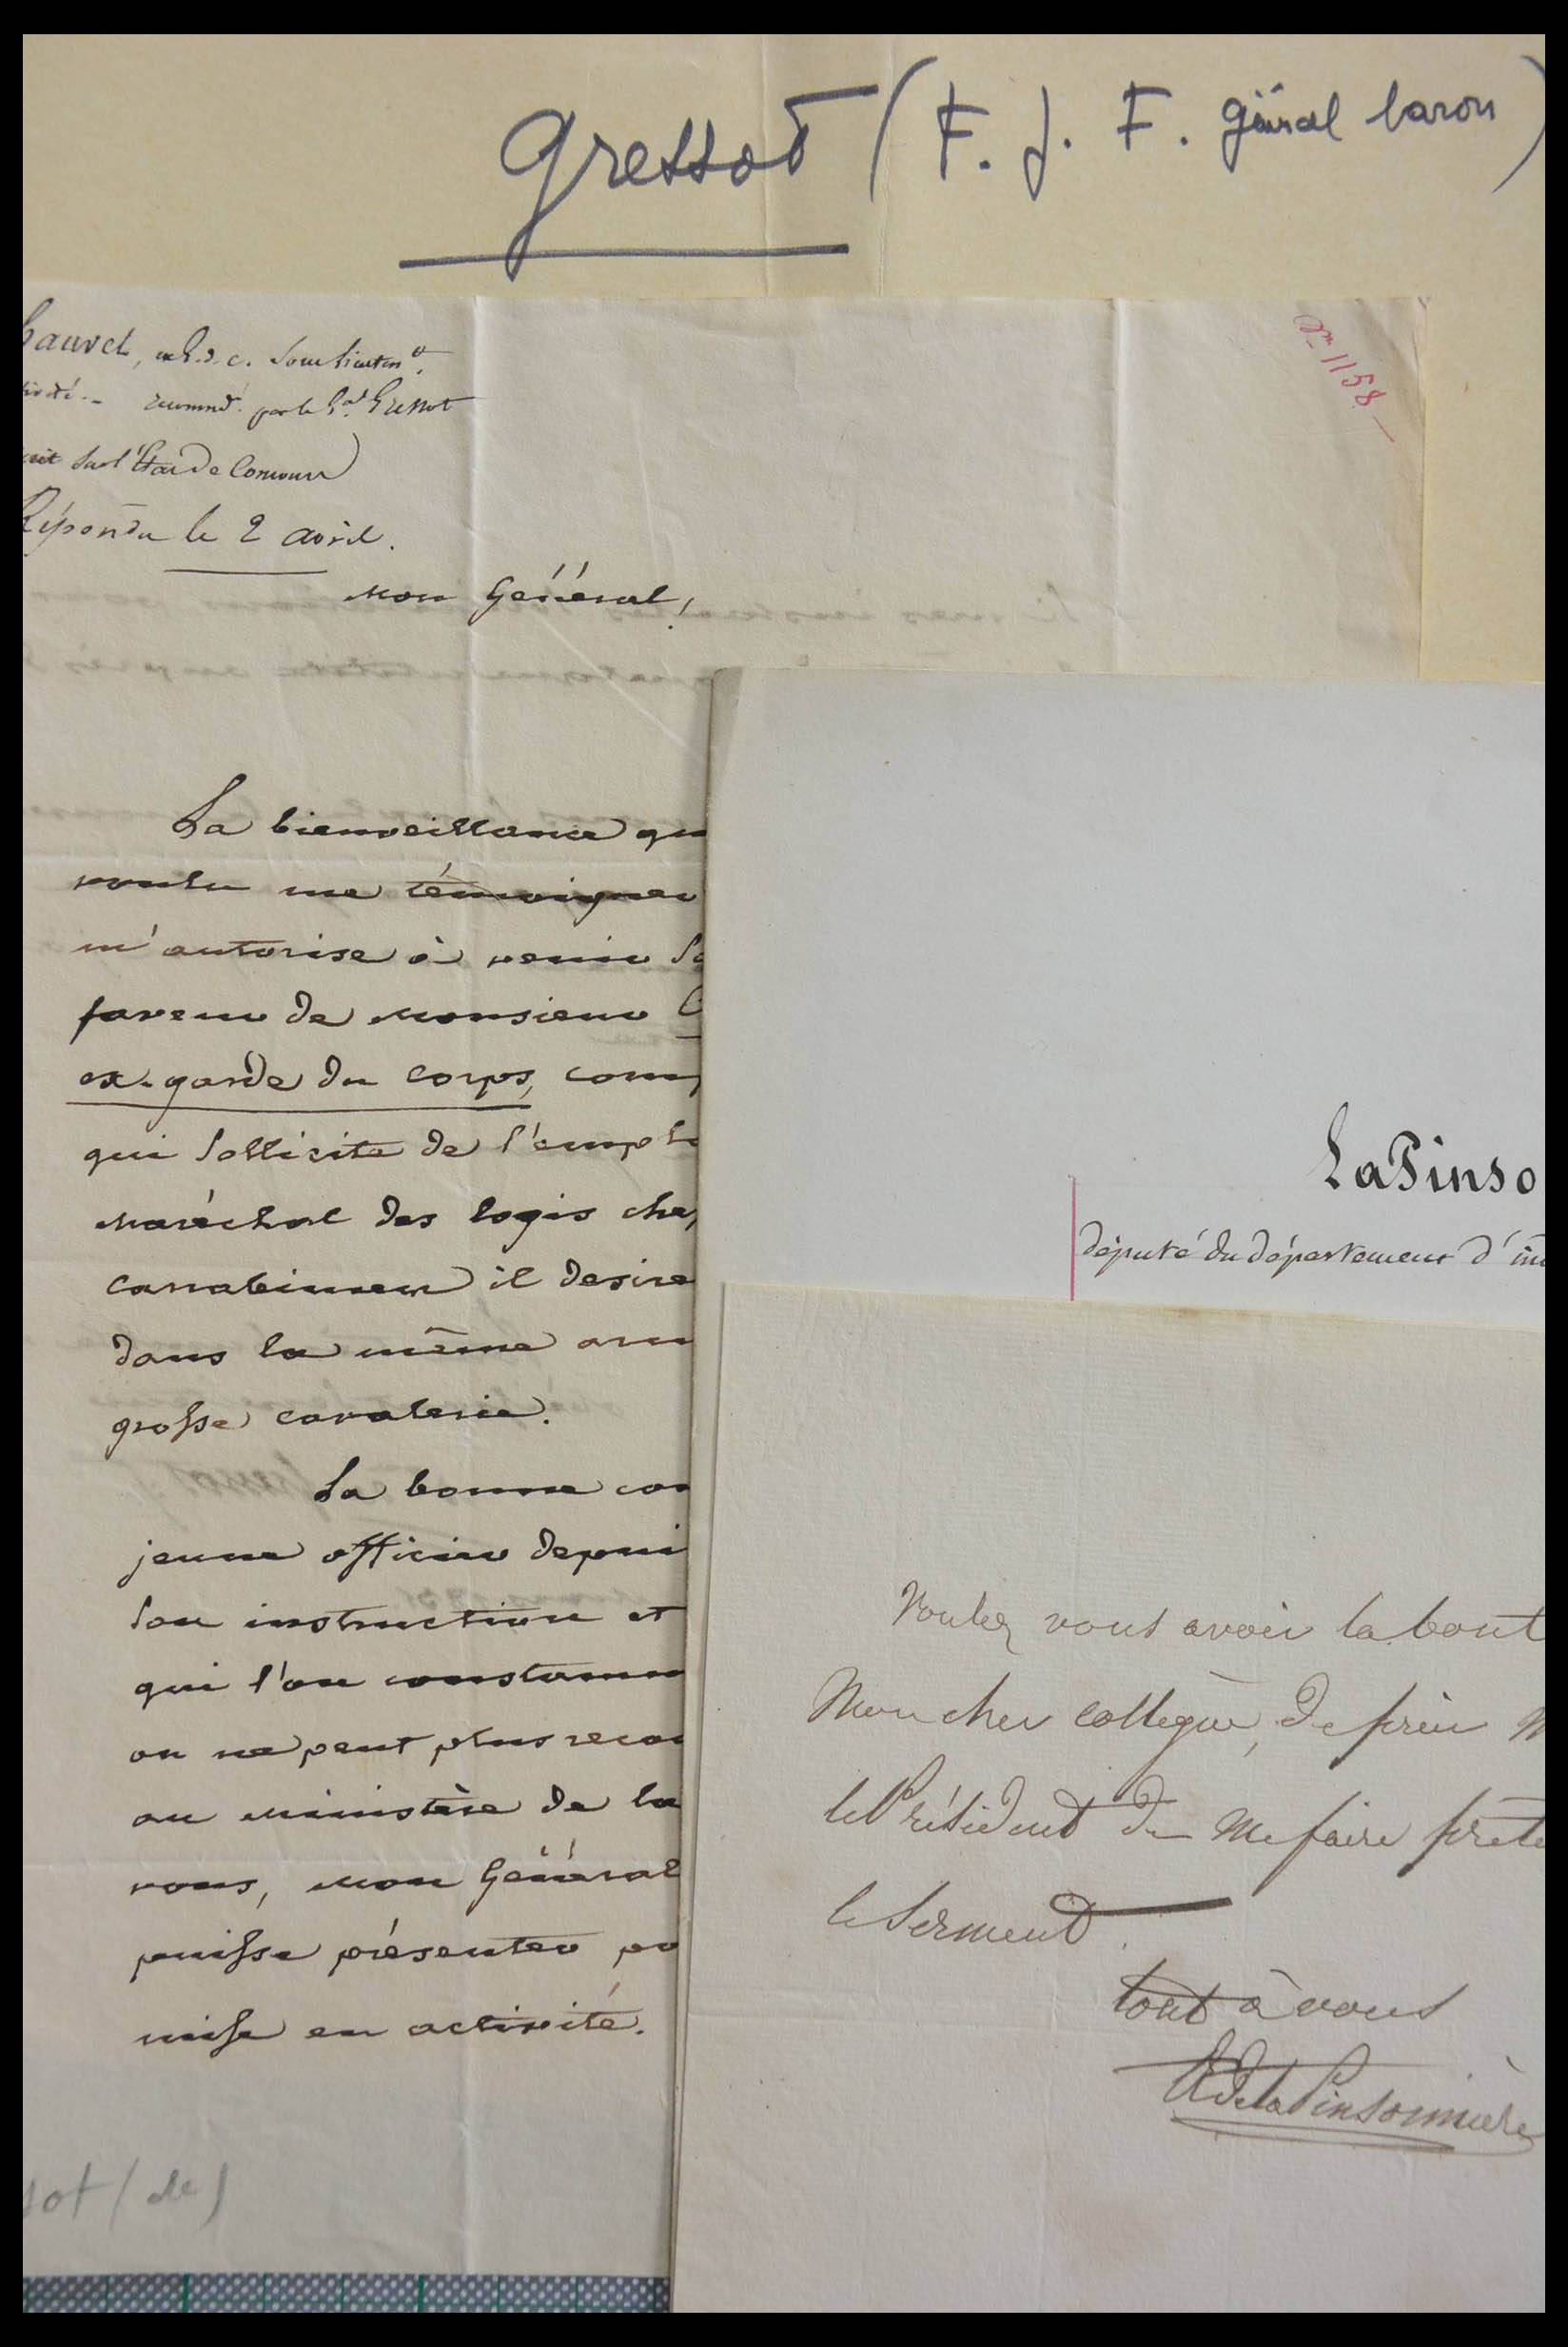 Gressot (F. J. F. général baron)
n° 1158.-
hauvet, ex g. d. c. Sous lieuten.t
recomd. par le G.al Gressot
Sur l'Etat de Concours
Répondu le 2 avril.
Mon Général,
La bienveillance qu
voulu me témoigner
m'autorise à venir So
faveur de Monsieur C
ex-garde du corps, com
qui Sollicite de l'emplo
Maréchal des logis che
Carrabiniers il desire
dans la même arm
grosse cavalerie.
La bonne con
jeune officier depui
Son instruction et
qui l'on constamm
on ne peut plus recom
au Ministère de la
vous, Mon Général
puisse présenter po
mise en activité.
sot (de)
LaPinso
député du département d'in
Voulez vous avoir la bont
Mon cher collègue, de prier M
le Président de me faire prête
le Serment.
tout à vous
de la Pinsonnière